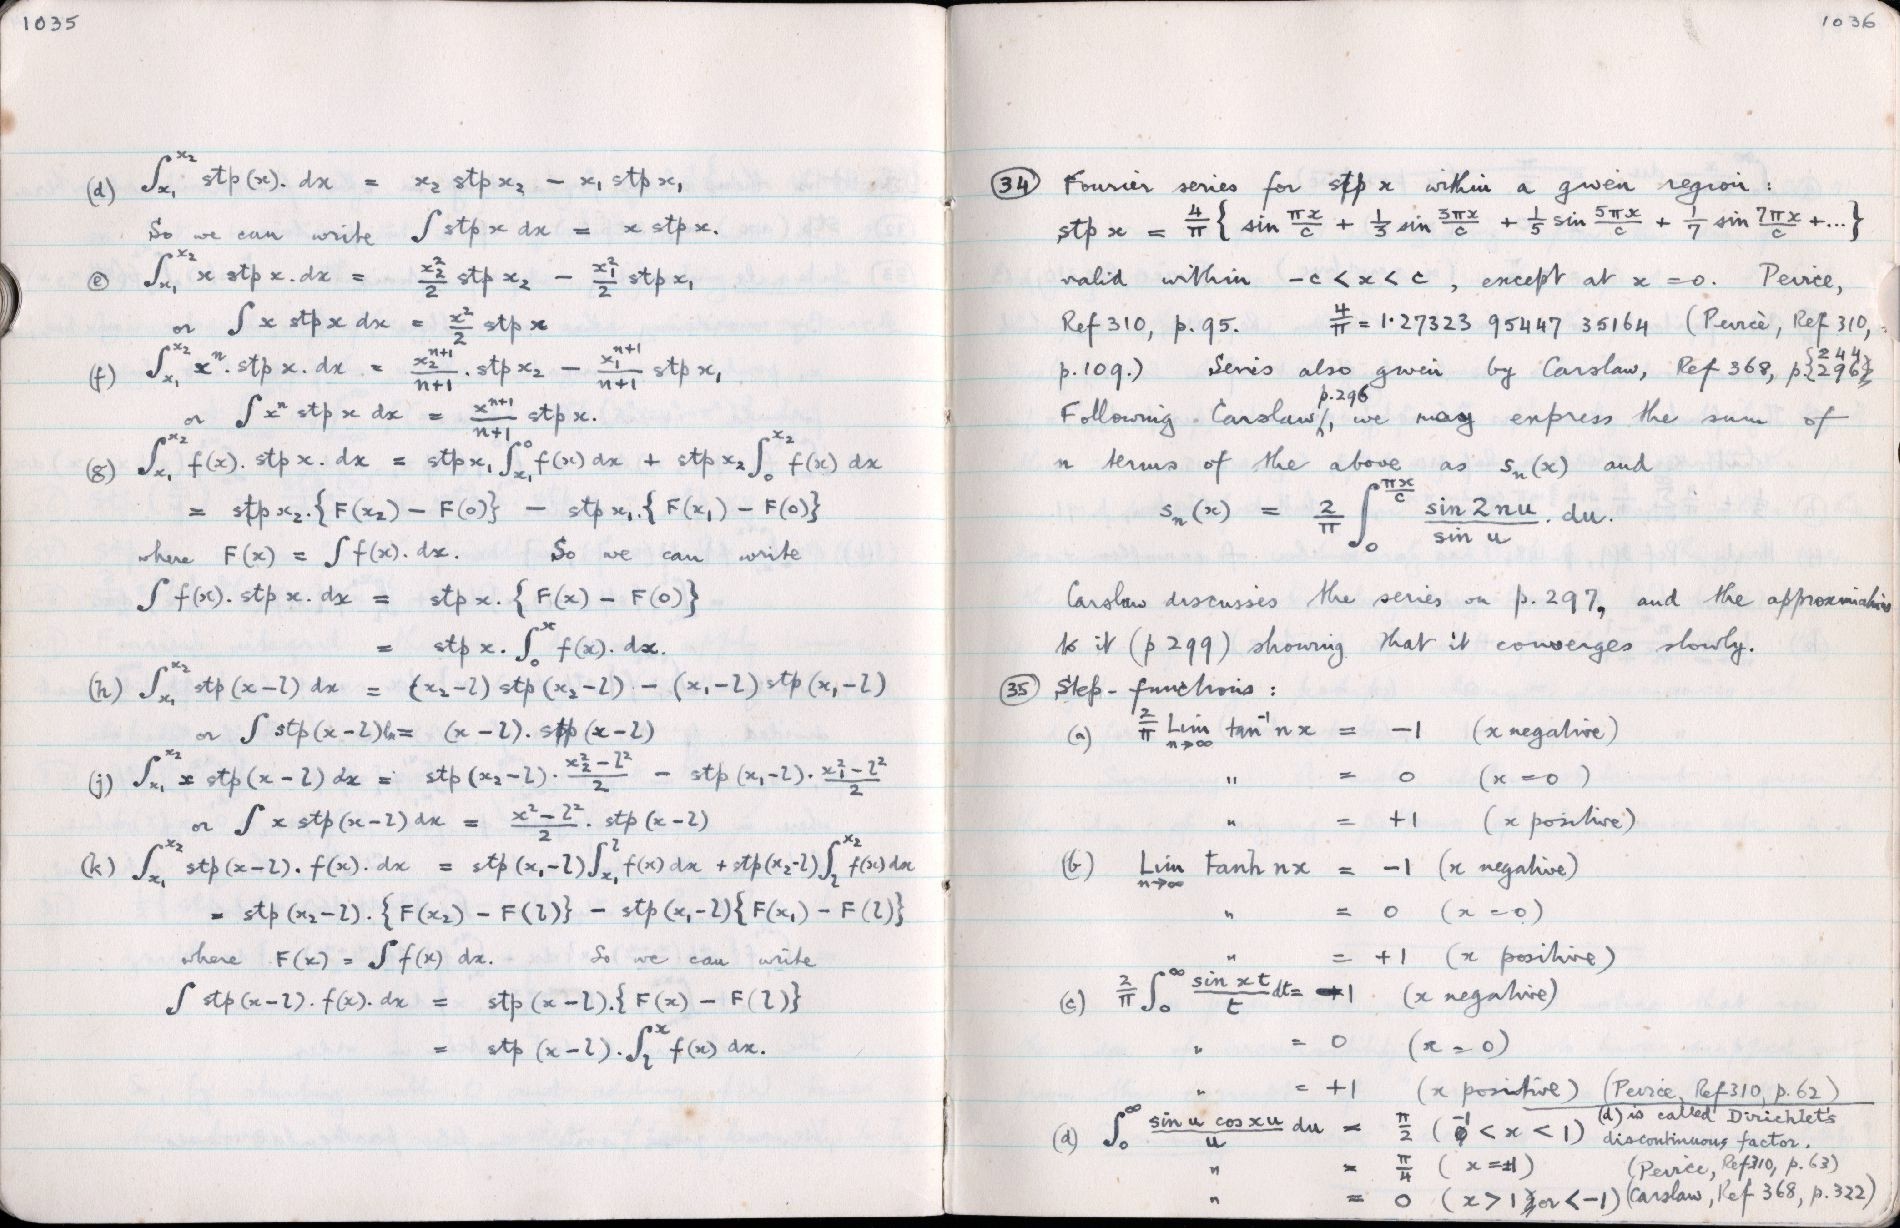 1035
(d) ∫_{x₁}^{x₂} stp(x). dx = x₂ stp x₂ − x₁ stp x₁
So we can write ∫ stp x dx = x stp x.
(e) ∫_{x₁}^{x₂} x stp x. dx = x₂²/2 stp x₂ − x₁²/2 stp x₁
or ∫ x stp x dx = x²/2 stp x
(f) ∫_{x₁}^{x₂} xⁿ. stp x. dx = x₂ⁿ⁺¹/n+1 . stp x₂ − x₁ⁿ⁺¹/n+1 stp x₁
or ∫ xⁿ stp x dx = xⁿ⁺¹/n+1 stp x.
(g) ∫_{x₁}^{x₂} f(x). stp x. dx = stp x₁ ∫_{x₁}^{0} f(x) dx + stp x₂ ∫_{0}^{x₂} f(x) dx
= stp x₂.{F(x₂) − F(0)} − stp x₁.{F(x₁) − F(0)}
where F(x) = ∫ f(x). dx. So we can write
∫ f(x). stp x. dx = stp x. {F(x) − F(0)}
= stp x. ∫_{0}^{x} f(x). dx.
(h) ∫_{x₁}^{x₂} stp(x−l) dx = (x₂−l) stp(x₂−l) − (x₁−l) stp(x₁−l)
or ∫ stp(x−l)dx = (x−l). stp(x−l)
(j) ∫_{x₁}^{x₂} x stp(x−l) dx = stp(x₂−l). x₂²−l²/2 − stp(x₁−l). x₁²−l²/2
or ∫ x stp(x−l) dx = x²−l²/2 . stp(x−l)
(k) ∫_{x₁}^{x₂} stp(x−l). f(x). dx = stp(x₁−l)∫_{x₁}^{l} f(x) dx + stp(x₂−l)∫_{l}^{x₂} f(x) dx
= stp(x₂−l).{F(x₂) − F(l)} − stp(x₁−l){F(x₁) − F(l)}
where F(x) = ∫ f(x) dx. So we can write
∫ stp(x−l). f(x). dx = stp(x−l).{F(x) − F(l)}
= stp(x−l). ∫_{l}^{x} f(x) dx.
1036
(34) Fourier series for stp x within a given region:
stp x = 4/π { sin πx/c + 1/3 sin 3πx/c + 1/5 sin 5πx/c + 1/7 sin 7πx/c + ...}
valid within −c < x < c, except at x = 0. Peirce,
Ref 310, p. 95. 4/π = 1·27323 95447 35164 (Peirce, Ref 310,
p. 109.) Series also given by Carslaw, Ref 368, p.{244, 296}
Following Carslaw p.296, we may express the sum of
n terms of the above as sₙ(x) and
sₙ(x) = 2/π ∫_{0}^{πx/c} sin 2nu/sin u . du.
Carslaw discusses the series on p. 297, and the approximations
to it (p 299) showing that it converges slowly.
(35) Step-functions:
(a) 2/π Lim_{n→∞} tan⁻¹ nx = −1 (x negative)
" = 0 (x = 0)
" = +1 (x positive)
(b) Lim_{n→∞} Tanh nx = −1 (x negative)
" = 0 (x = 0)
" = +1 (x positive)
(c) 2/π ∫_{0}^{∞} sin xt/t dt = −1 (x negative)
" = 0 (x = 0)
" = +1 (x positive) (Peirce, Ref 310, p. 62)
(d) ∫_{0}^{∞} sin u cos xu/u du = π/2 (−1 < x < 1) (d) is called Dirichlet's
discontinuous factor.
" = π/4 (x = ±1) (Peirce, Ref 310, p. 63)
" = 0 (x > 1 or < −1) (Carslaw, Ref 368, p. 322)